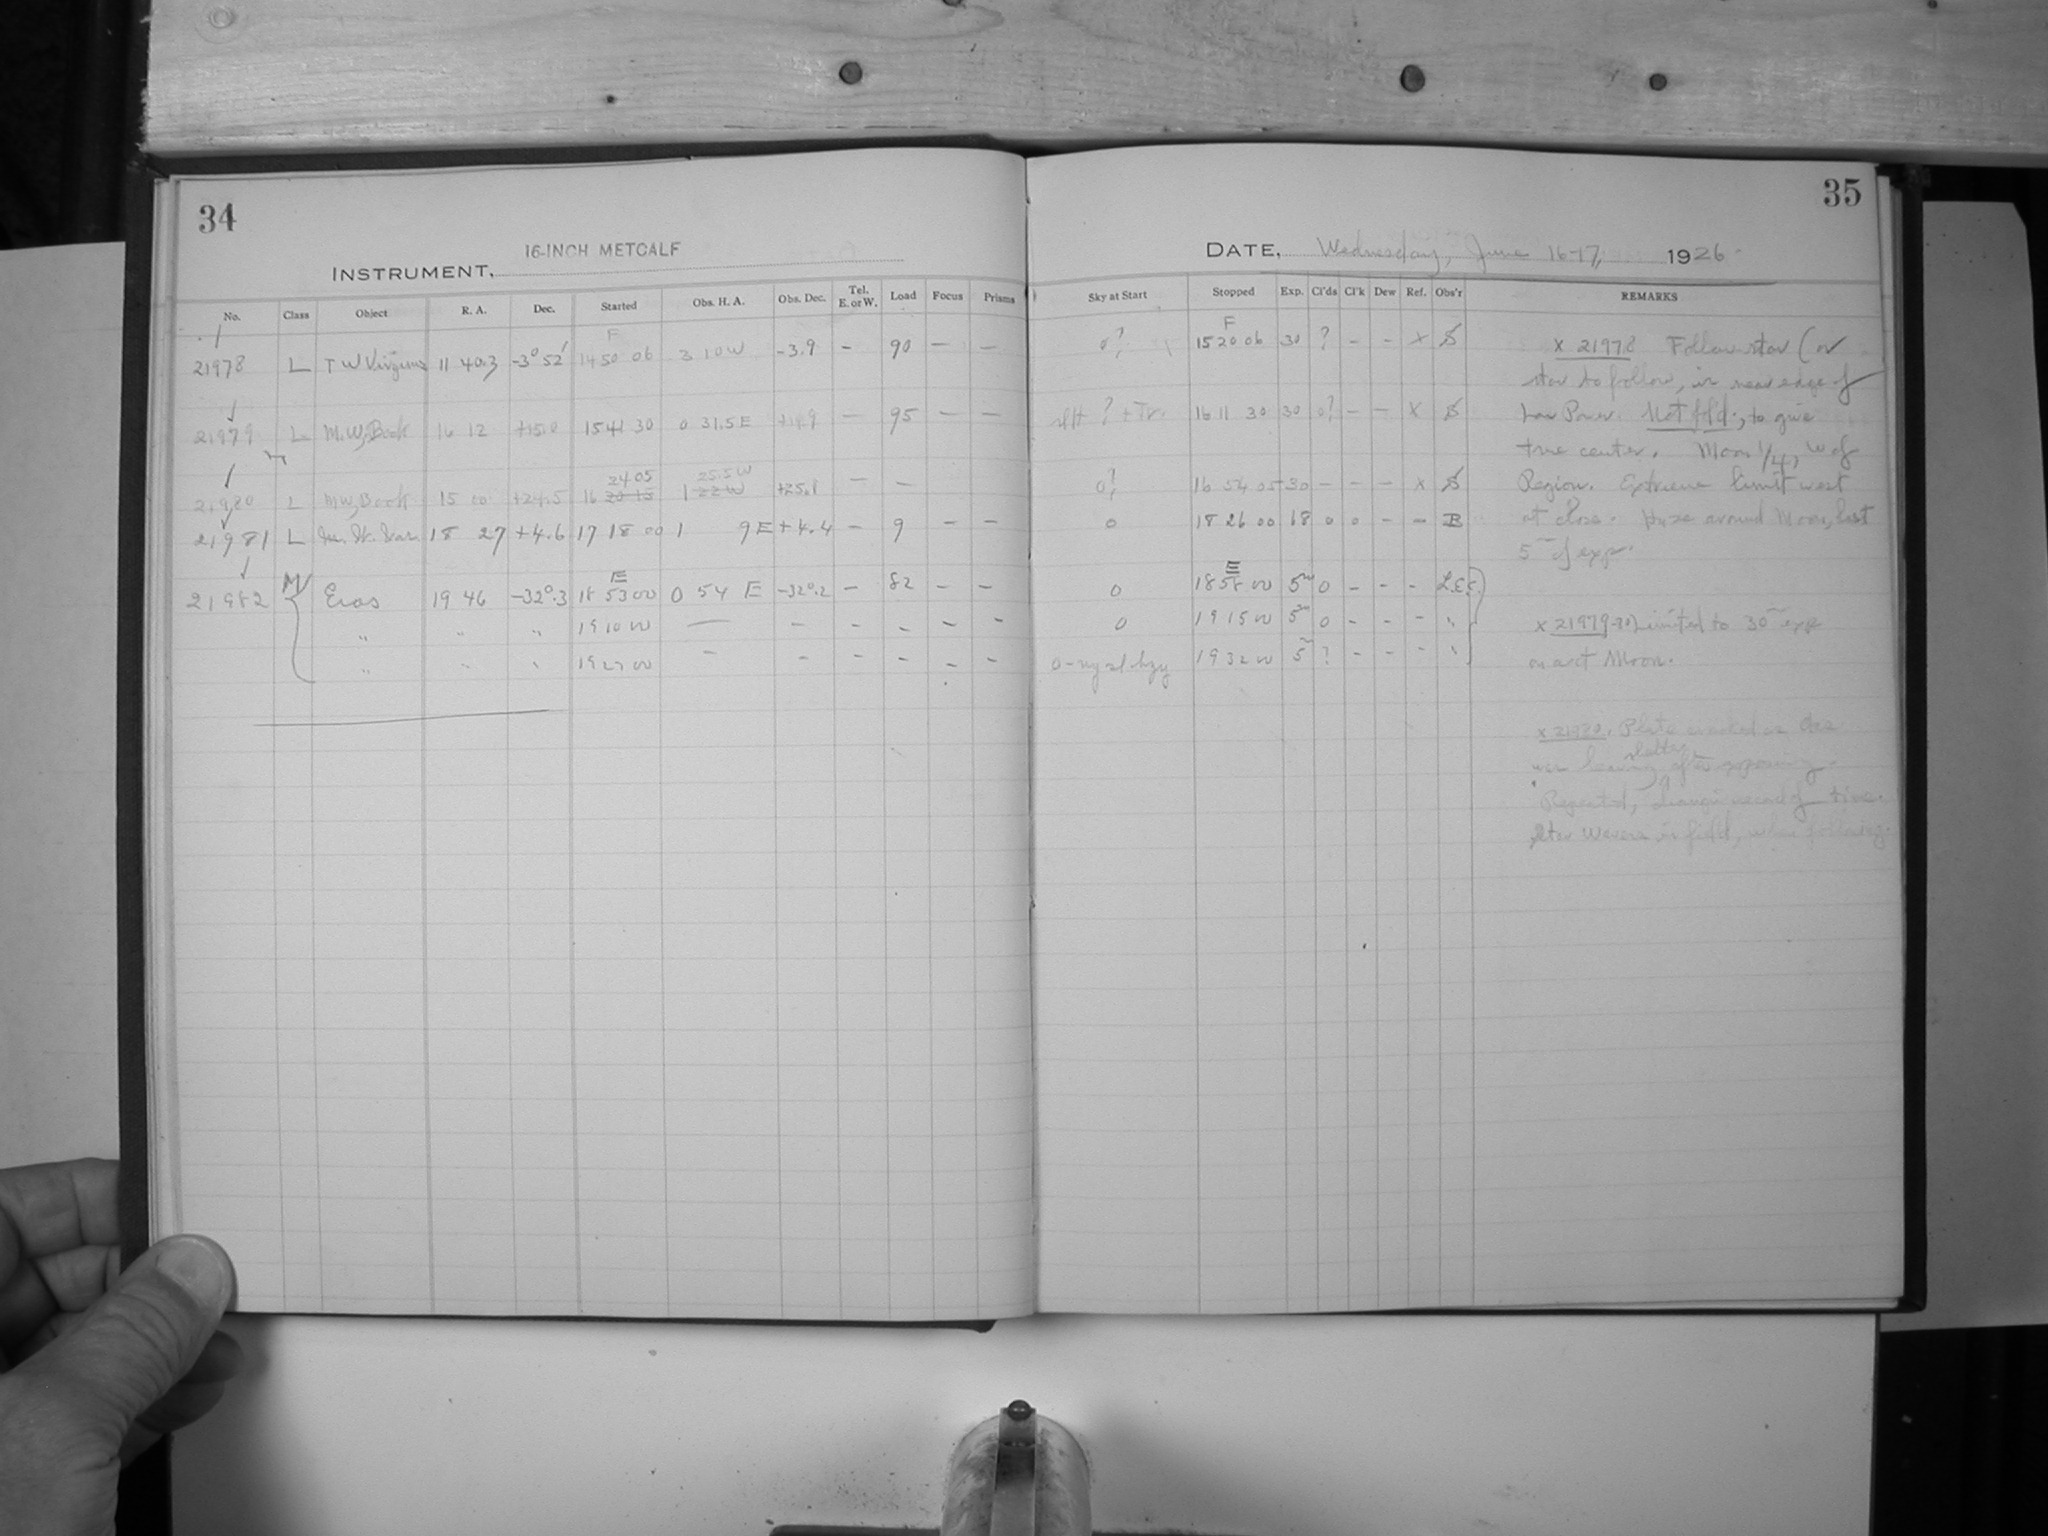 34
16-INCH METCALF
INSTRUMENT,
No. Class Object R. A. Dec. Started Obs. H. A. Obs. Dec. Tel. E. or W. Load Focus Prisms
F
21978 L T W Virginis 11 40.3 -3° 52' 14 50 06 3 10 W -3.9 - 90 - -
21979 L M.W, Book 16 12 +15.0 15 41 30 0 31.5 E +14.9 - 95 - -
24 05 25.5 W
21980 L MW, Book 15 00 +24.5 16 20 15 1 22 W +25.1 - -
21981 L 18 27 +4.6 17 18 00 1 9 E +4.4 - 9 - -
E
21982 M Eros 19 46 -32°.3 18 53 00 0 54 E -32°.2 - 82 - -
" " " 19 10 00 - - - - - -
" " " 19 27 00 - - - - - -
35
DATE, Wednesday, June 16-17, 1926.
Sky at Start Stopped Exp. Cl'ds Cl'k Dew Ref. Obs'r REMARKS
F
0? 15 20 06 30 ? - - x S
? + Tr. 16 11 30 30 0? - - x S
0? 16 54 05 30 - - - x S
0 18 26 00 68 0 0 - - B
E
0 18 58 00 5m 0 - - - L.E.E.
0 19 15 00 5m 0 - - - "
0 - 19 32 00 5m ? - - - "
x 21978 Follow star (or
star to follow, is near edge of
Low Power. Not foll'd., to give
true center. Moon 1/4, W of
Region. Extreme limit west
at close. Haze around Moon, last
5m of exp.
x 21979-80) Limited to 30m exp
on acct Moon.
x 21980. Plate cracked as
was after exposing.
Repeated, record of time.
Star Wavers in field, when following.